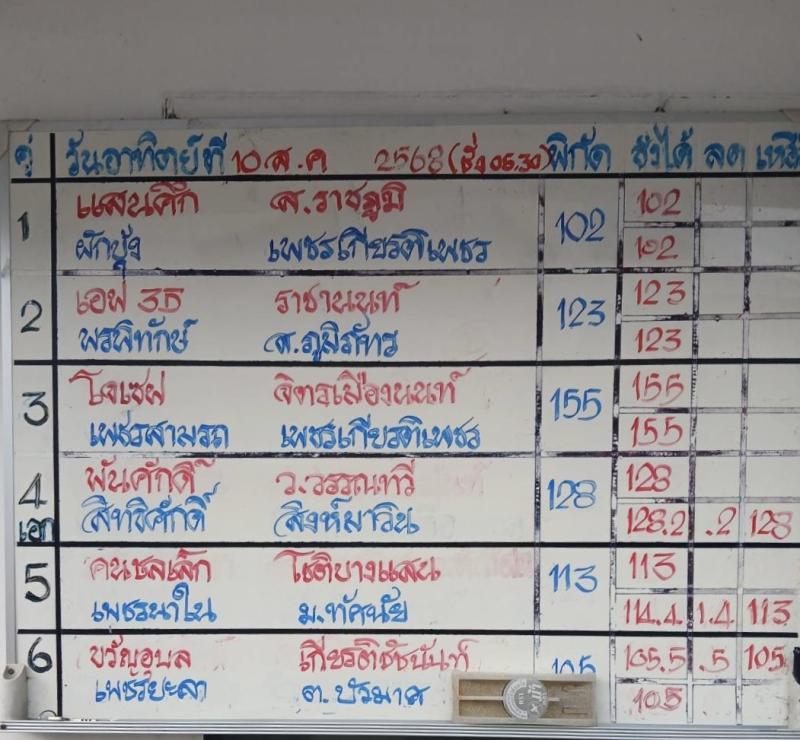 คู่ วันอาทิตย์ที่ 10 ส.ค 2568 (ชั่ง 05.30) พิกัด ชั่งได้ ลด
1 แสนศึก ส.ราชภูมิ 102 102
ผักบุ้ง เพชรเกียรติเพชร 102
2 เอฟ 35 ราชานนท์ 123 123
พรพิทักษ์ ศ.ภูมิภัทร 123
3 โจเซฟ จิตรเมืองนนท์ 155 155
เพชรสามรถ เพชรเกียรติเพชร 155
4 พันศักดิ์ ว.วรรณทวี 128 128
เอก สิทธิศักดิ์ สิงห์มาวิน 128.2 .2 128
5 คนชลเล็ก โชติบางแสน 113 113
เพชรนาใน ม.ทัศนัย 114.4 1.4 113
6 ขวัญอุบล เกียรติชัชนันท์ 105 105.5 .5 105
เพชรยะลา ต.ปรมาศ 105